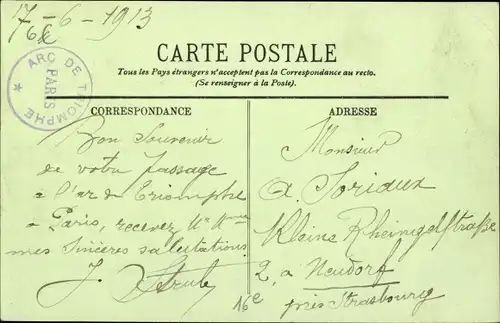 17-6-1913
ARC DE TRIOMPHE
PARIS
CARTE POSTALE
Tous les Pays étrangers n'acceptent pas la Correspondance au recto.
(Se renseigner à la Poste).
CORRESPONDANCE
ADRESSE
Bon Souvenir
de votre passage
à l'arc de Triomphe
à Paris, recevez
mes Sincères salutations
J.
16e
Monsieur
A. Soriaux
Kleine Rheingelstraße
2, a Neudorf
près Strasbourg